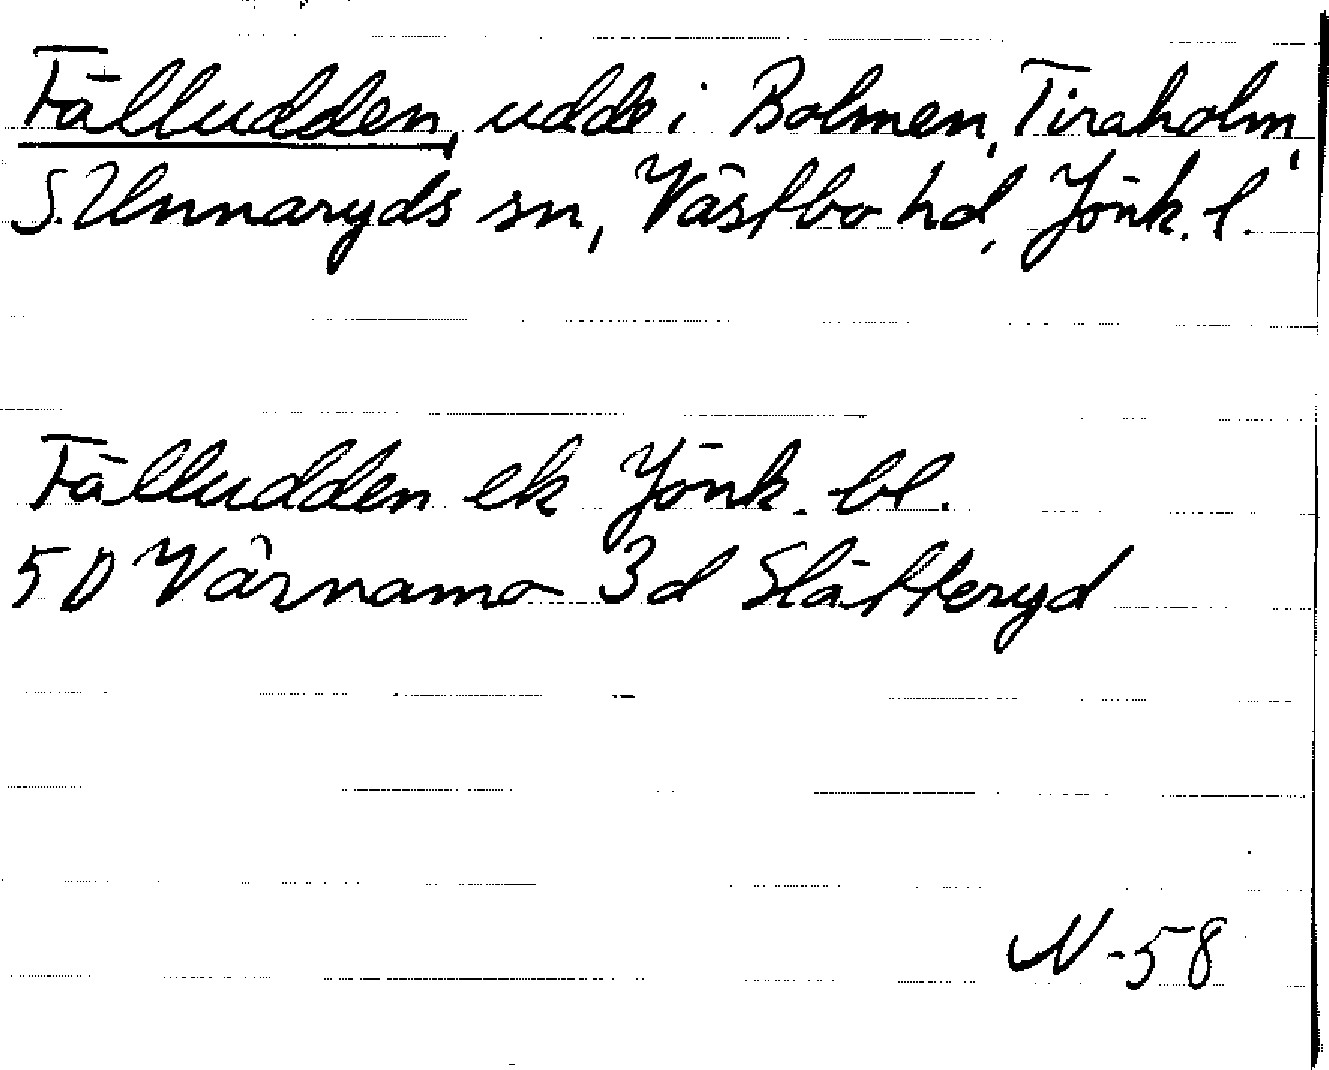 Fälludden, udde i Bolmen, Tiraholm,
S. Unnaryds sn, Västbo hd, Jönk. l.
Fälludden ek Jönk. bl.
5D Värnamo 3d Slätteryd
N-58